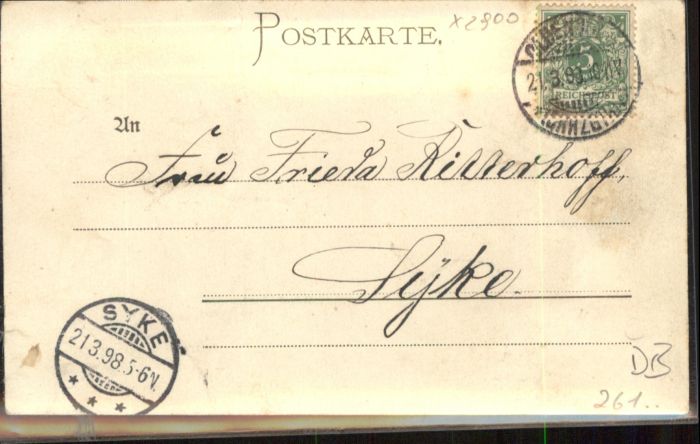 POSTKARTE.
x2900
5
REICHSPOST
21.3.98
An
Frau Frieda Ritterhoff,
Syke.
SYKE
21.3.98.5-6N.
* * *
DB
261..